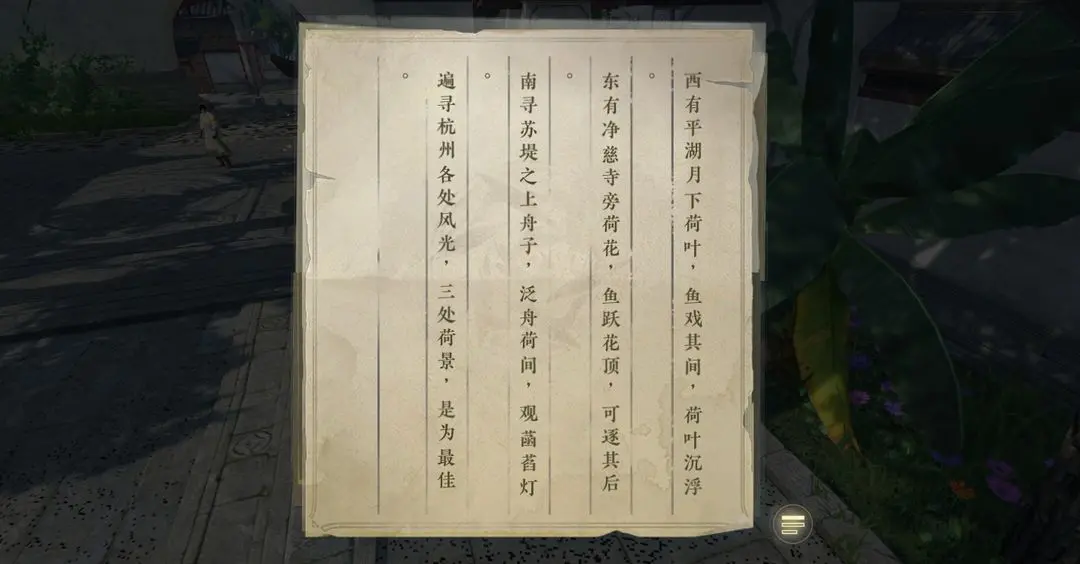 西有平湖月下荷叶，鱼戏其间，荷叶沉浮
。
东有净慈寺旁荷花，鱼跃花顶，可逐其后
。
南寻苏堤之上舟子，泛舟荷间，观菡萏灯
。
遍寻杭州各处风光，三处荷景，是为最佳
。